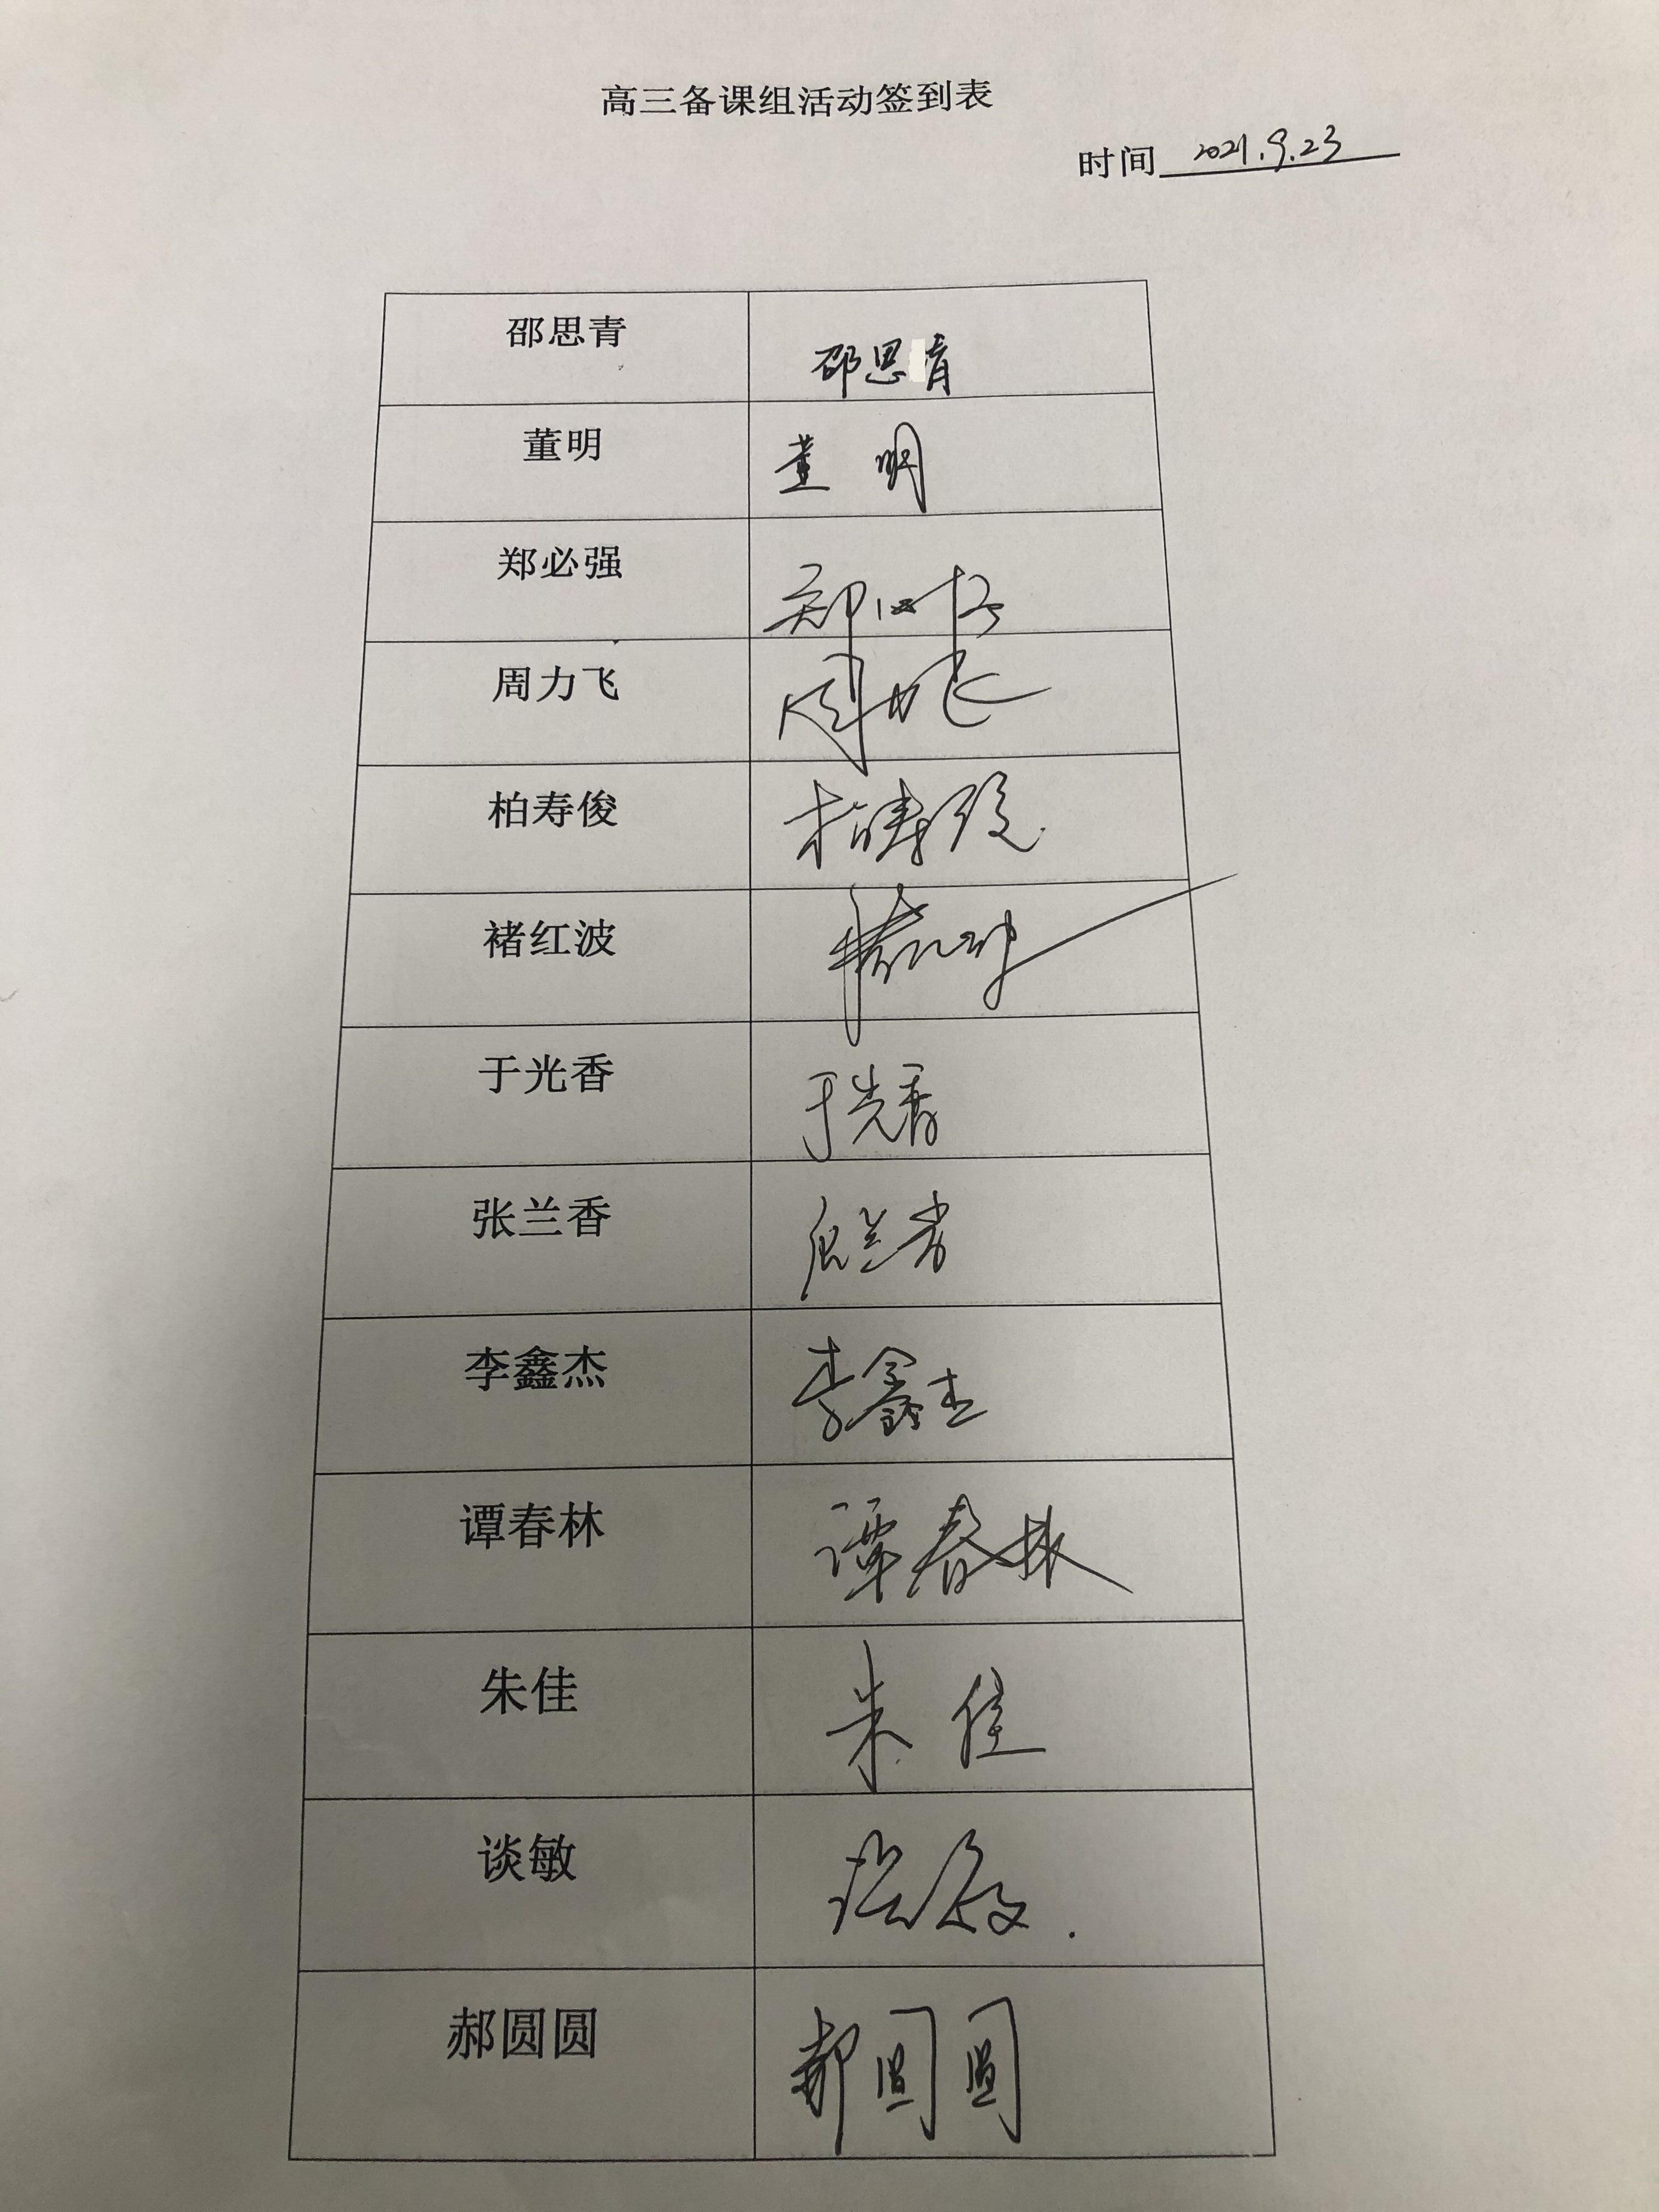 高三备课组活动签到表
时间 2021.9.23
邵思青 邵思青
董明 董明
郑必强 郑必强
周力飞 周力飞
柏寿俊 柏寿俊
褚红波 褚红波
于光香 于光香
张兰香 张兰香
李鑫杰 李鑫杰
谭春林 谭春林
朱佳 朱佳
谈敏 谈敏
郝圆圆 郝圆圆